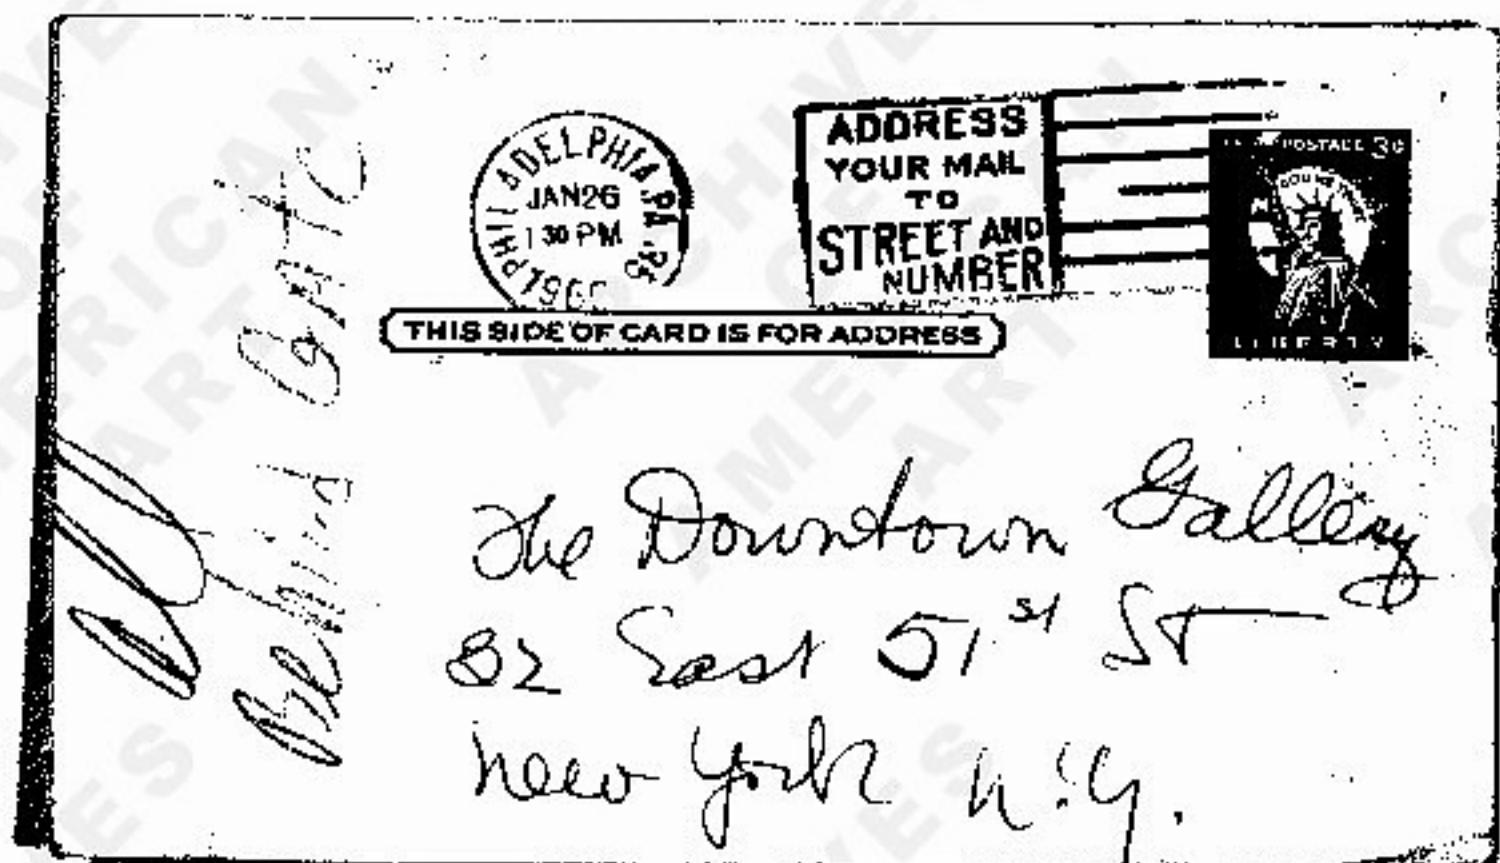 PHILADELPHIA, PA.
JAN 26
1 30 PM
ADDRESS
YOUR MAIL
TO
STREET AND
NUMBER
POSTAGE 3¢
LIBERTY
THIS SIDE OF CARD IS FOR ADDRESS
The Downtown Gallery
32 East 51st St
New York N.Y.
ARCHIVES OF
AMERICAN
ART